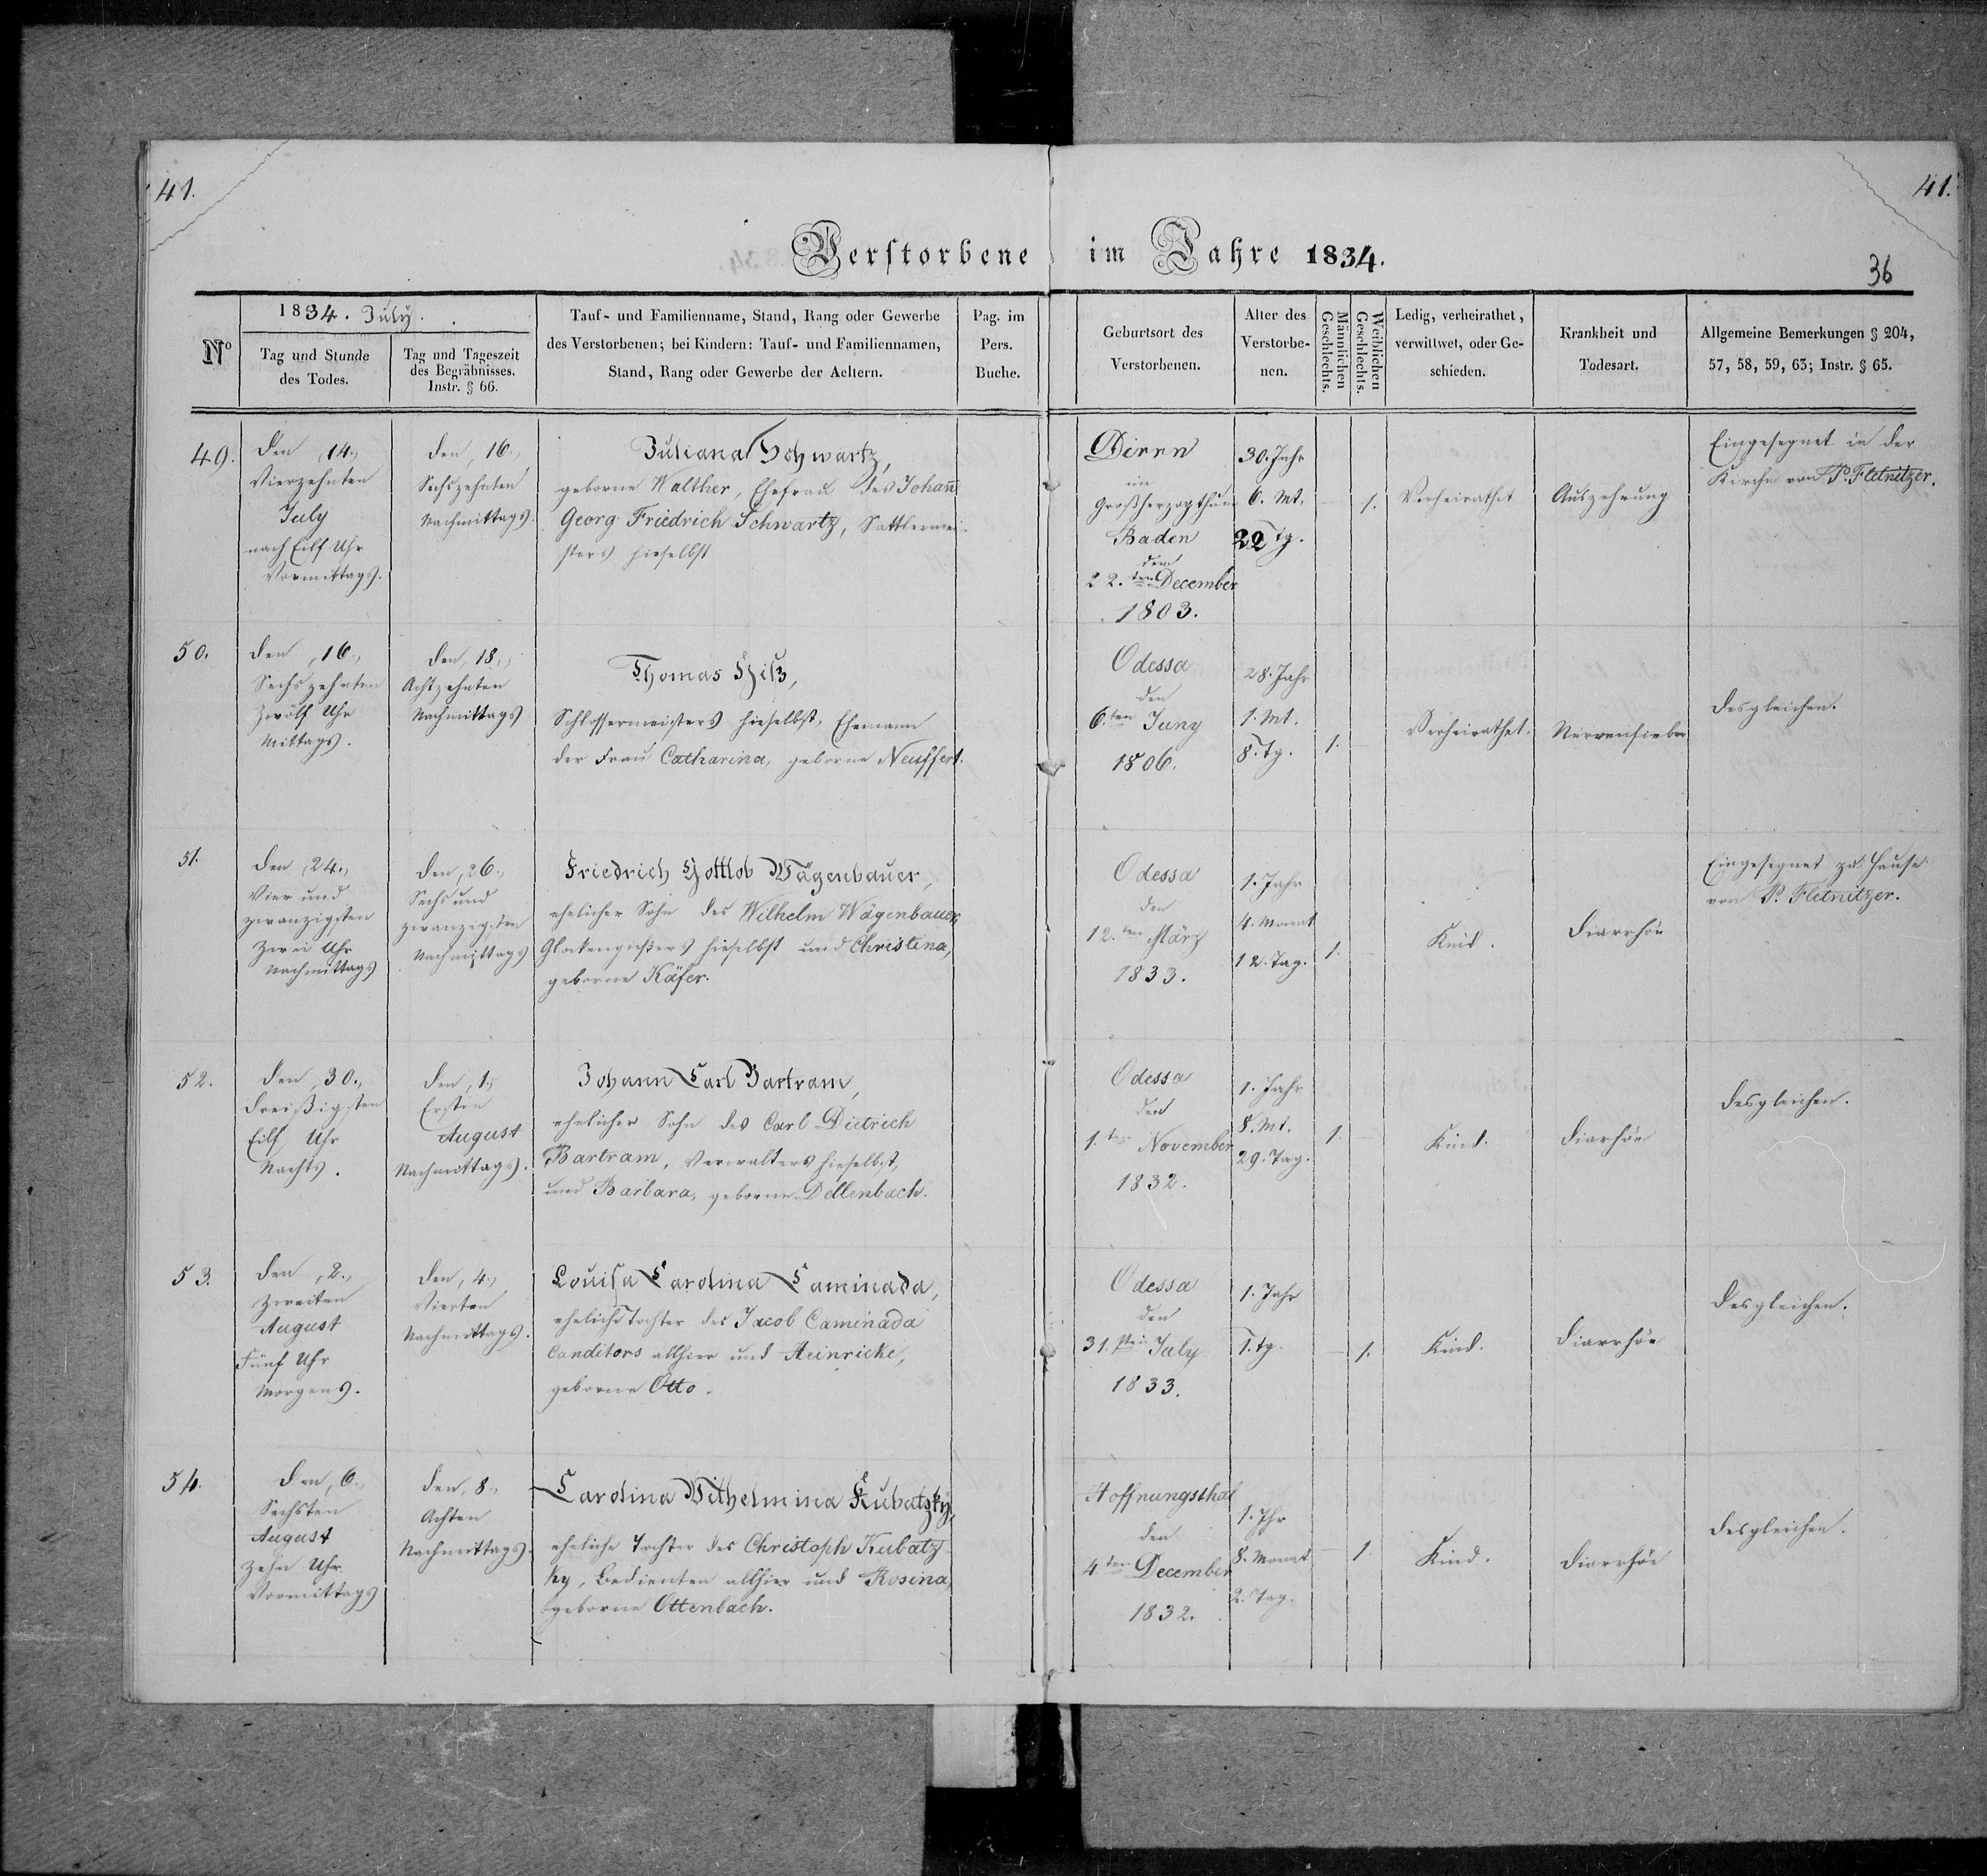 41.
41.
Verstorbene im Jahre 1834.
36
Nº
1834. July.
Tag und Stunde
des Todes.
Tag und Tageszeit
des Begräbnisses.
Instr. § 66.
Tauf- und Familienname, Stand, Rang oder Gewerbe
des Verstorbenen; bei Kindern: Tauf- und Familiennamen,
Stand, Rang oder Gewerbe der Aeltern.
Pag. im
Pers.
Buche.
Geburtsort des
Verstorbenen.
Alter des
Verstorbe-
nen.
Männlichen
Geschlechts.
Weiblichen
Geschlechts.
Ledig, verheirathet,
verwittwet, oder Ge-
schieden.
Krankheit und
Todesart.
Allgemeine Bemerkungen § 204,
57, 58, 59, 63; Instr. § 65.
49.
den 14.,
Vierzehnten
July
nach Eilf Uhr
Vormittags.
den, 16.,
Sechszehnten
Nachmittags.
Juliana Schwartz,
geborne Walther, Ehefrau des Johañ
Georg Friedrich Schwartz, Sattlermei-
sters hieselbst
im
Großherzogthum
Baden
den
22.ten December
1803.
30. Jahr
6. Mt.
22 Tg.
1.
Verheirathet
Auszehrung
Eingesegnet in der
Kirche von P. Fletnitzer.
50.
den, 16.,
Sechszehnten
Zwölf Uhr
Mittags.
den, 18.,
Achtzehnten
Nachmittags
Thomas
Schlossermeisters hieselbst, Ehemann
der Frau Catharina, geborne Neuffert.
Odessa
den
6.ten Juny
1806.
28. Jahr
1. Mt.
8. Tg.
1.
Verheirathet.
Nervenfieber
desgleichen.
51.
den, 24.,
Vier und
zwanzigsten
Zwei Uhr
Nachmittags
den, 26.,
Sechs und
zwanzigsten
Nachmittags
Friedrich Gottlob Wägenbauer,
ehelicher Sohn des Wilhelm Wägenbauer,
Glockengießers hieselbst und Christina,
geborne Käfer.
Odessa
den
12.ten März
1833.
1. Jahr
4. Monat
12. Tag.
1.
Kind.
Diarrhöe
Eingesegnet zu Hause
von P. Fletnitzer.
52.
den, 30.,
dreißigsten
Eilf Uhr
Nachts.
den, 1.,
Ersten
August
Nachmittags.
Johann Carl Bartram,
ehelicher Sohn des Carl Dietrich
Bartram, Verwalters hieselbst,
und Barbara, geborne Dellenbach.
Odessa
den
1.ten November
1832.
1. Jahr
8. Mt.
29. Tag.
1.
Kind.
Diarhöe
desgleichen.
53.
den, 2.,
Zweiten
August
Fünf Uhr
Morgens.
den, 4.,
Vierten
Nachmittags.
Louisa Carolina Caminada,
eheliche Tochter des Jacob Caminada
Canditors allhier und Heinricke,
geborne Otto.
Odessa
den
31.sten July
1833.
1. Jahr
1. Tg.
1.
Kind.
Diarrhöe
desgleichen.
54.
den, 6.,
Sechsten
August
Zehn Uhr
Vormittags
den, 8.,
Achten
Nachmittags.
Carolina Wilhelmina Kubatzky,
eheliche Tochter des Christoph Kubatz-
ky, Bedienten allhier und Rosina,
geborne Ottenbach.
Hoffnungsthal
den
4ten December
1832.
1. Jhr
8. Monat
2. Tag.
1.
Kind.
Diarrhöe
desgleichen.